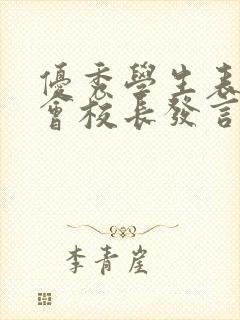 優秀學生表
會校長發言
李青崖